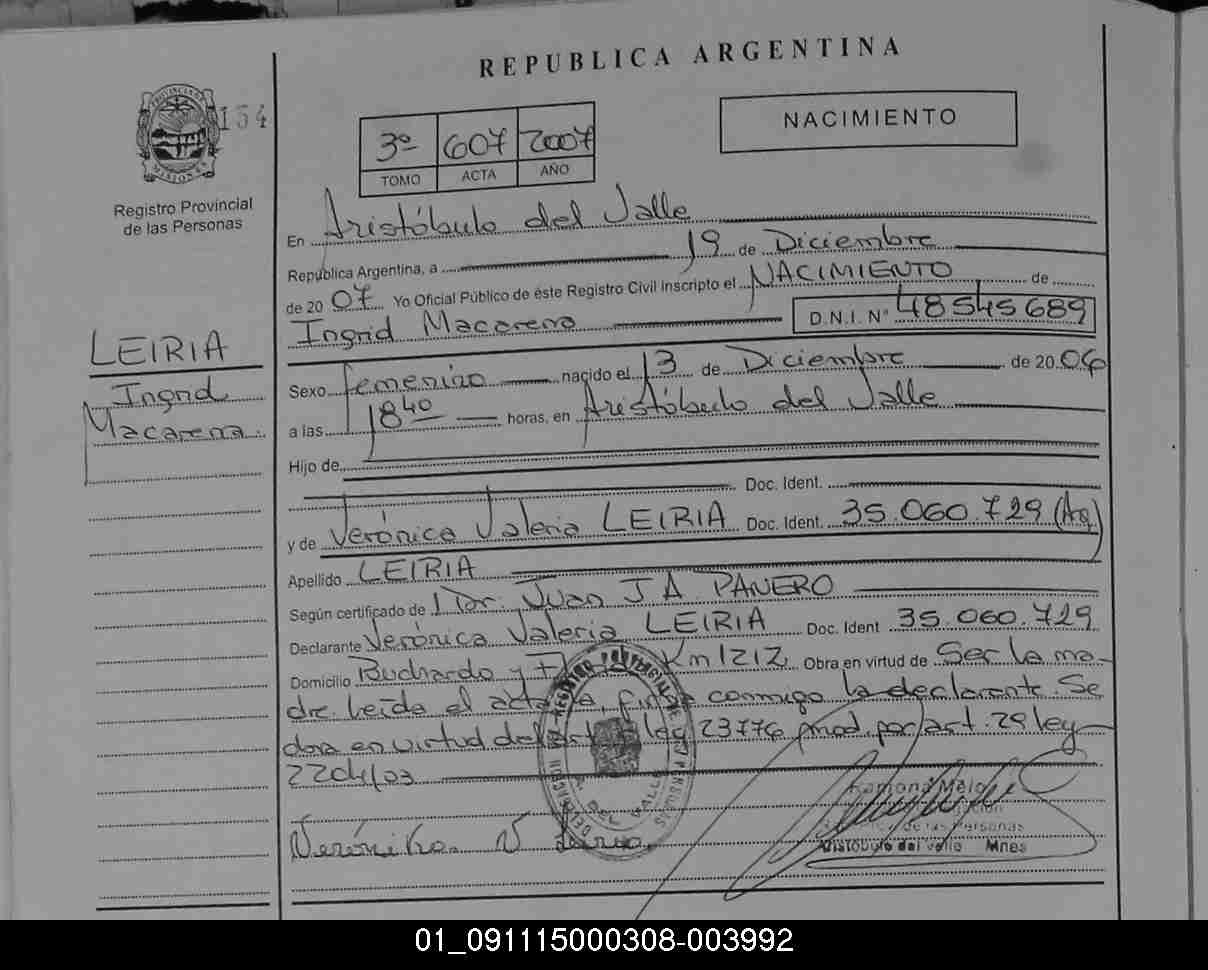 REPUBLICA ARGENTINA
154
NACIMIENTO
3º 607 2007
TOMO ACTA AÑO
Registro Provincial
de las Personas
PROVINCIA DE MISIONES
En Aristóbulo del Valle
República Argentina, a 19 de Diciembre
de 2007 Yo Oficial Público de éste Registro Civil inscripto el NACIMIENTO de
Ingrid Macarena D.N.I. Nº 48545689
LEIRIA
Ingrid
Macarena.
Sexo femenino nacido el 13 de Diciembre de 2006
a las 18 40 horas, en Aristóbulo del Valle
Hijo de
Doc. Ident.
y de Verónica Valeria LEIRIA Doc. Ident. 35.060.729 (Arg)
Apellido LEIRIA
Según certificado de Dr. Juan J A PANERO
Declarante Verónica Valeria LEIRIA Doc. Ident 35.060.729
Domicilio Buchardo y Km 1212 Obra en virtud de Ser la ma-
dre. Leída el acta conmigo la declarante. Se
labra en virtud del ley 23776 mod. por art. 29 ley
Ramona
de las Personas
Aristóbulo del Valle Mnes
Verónika. V
01_091115000308-003992